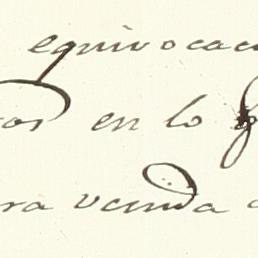 equivocac
os en lo
ra venida